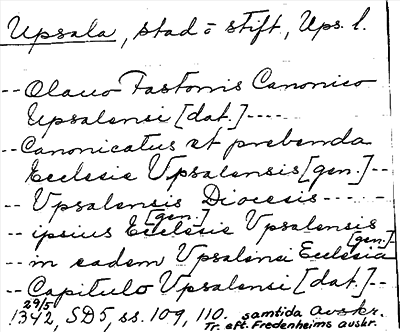 Upsala, stad o stift, Ups. l.
-- Olauo Fastonis Canonico
Upsalensi [dat.] ----
-- Canonicatus et prebenda
Ecclesie Vpsalensis [gen.] --
-- Vpsalensis Diocesis ----
-- ipsius Ecclesie Vpsalensis [gen.] --
-- in eadem Vpsalensi Ecclesia [gen.] --
-- Capitulo Vpsalensi [dat.] --
29/5 1342, SD5, ss. 109, 110. samtida avskr.
Tr. eft. Fredenheims avskr.